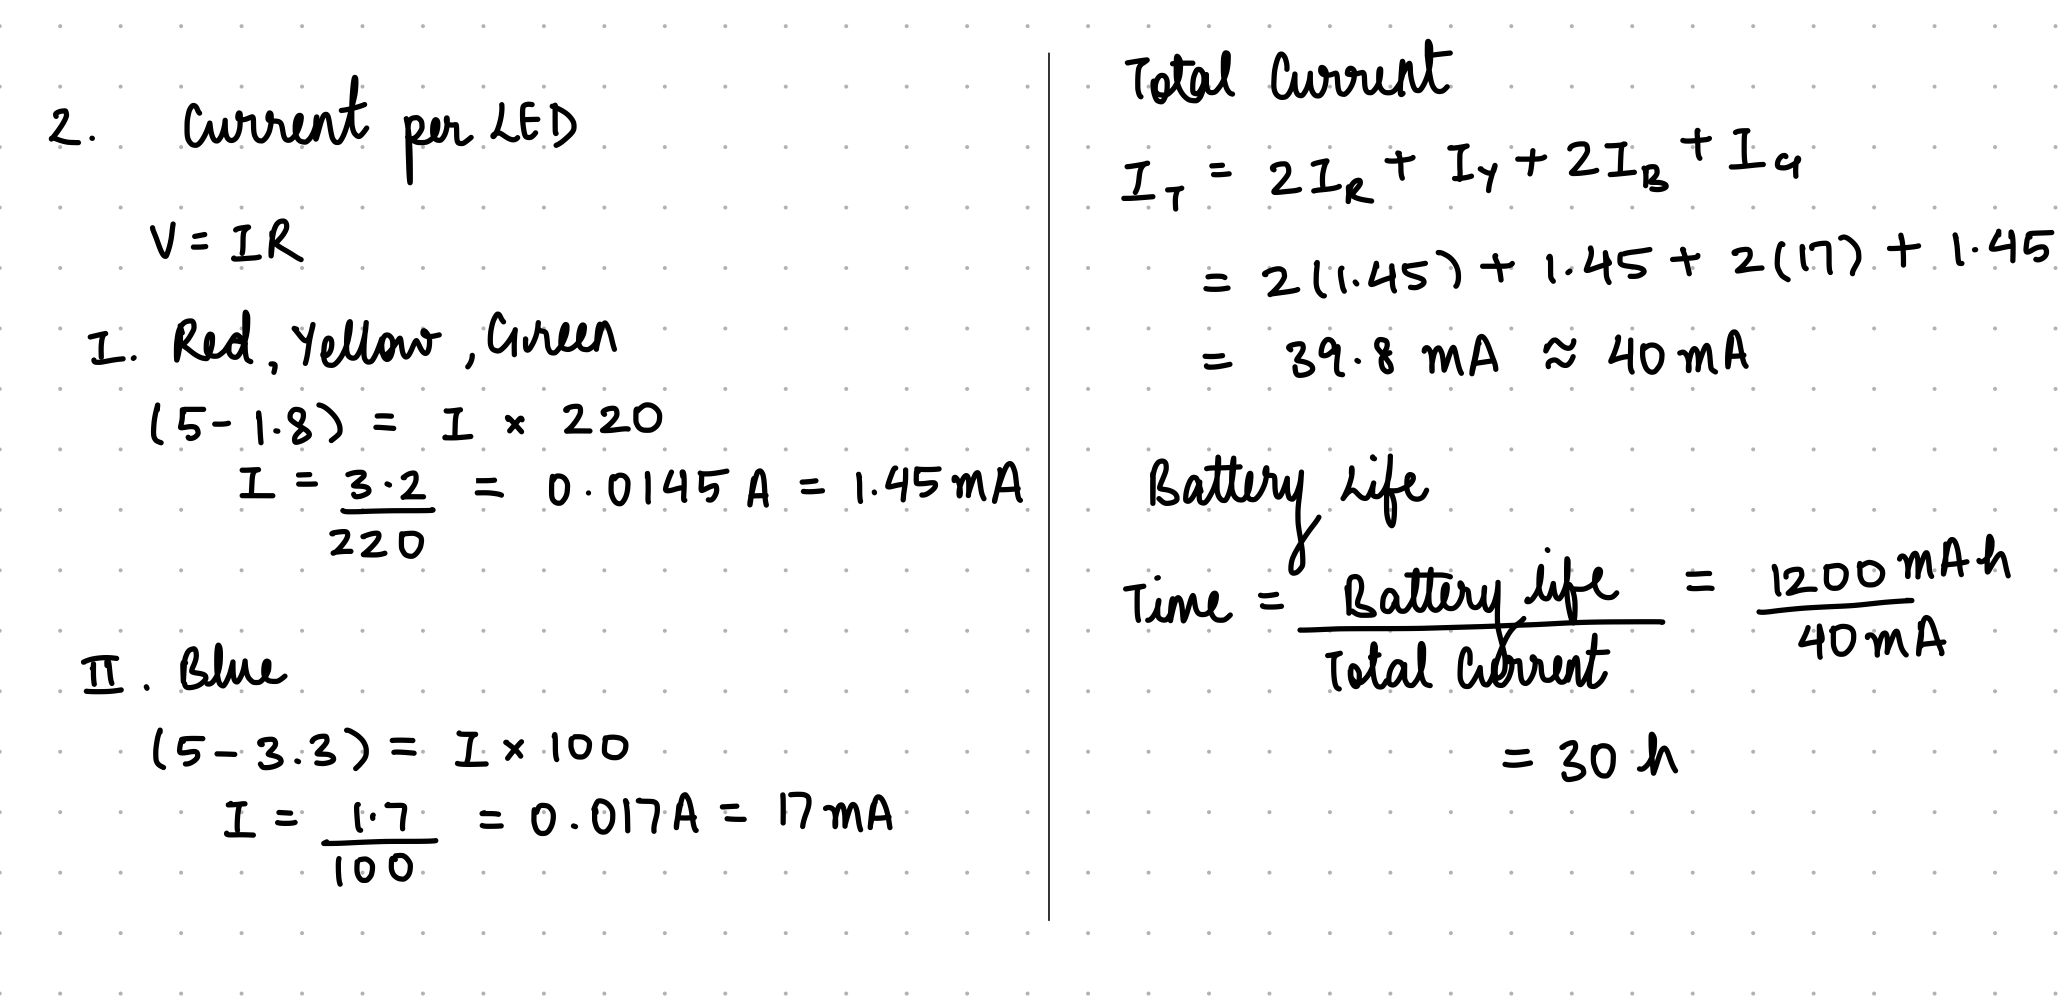 2. Current per LED
V = IR
I. Red, Yellow, Green
(5 - 1.8) = I × 220
I = 3.2/220 = 0.0145 A = 1.45 mA
II. Blue
(5 - 3.3) = I × 100
I = 1.7/100 = 0.017A = 17 mA
Total Current
I_T = 2I_R + I_Y + 2I_B + I_G
= 2(1.45) + 1.45 + 2(17) + 1.45
= 39.8 mA ≈ 40 mA
Battery Life
Time = Battery life/Total Current = 1200 mAh/40 mA
= 30 h